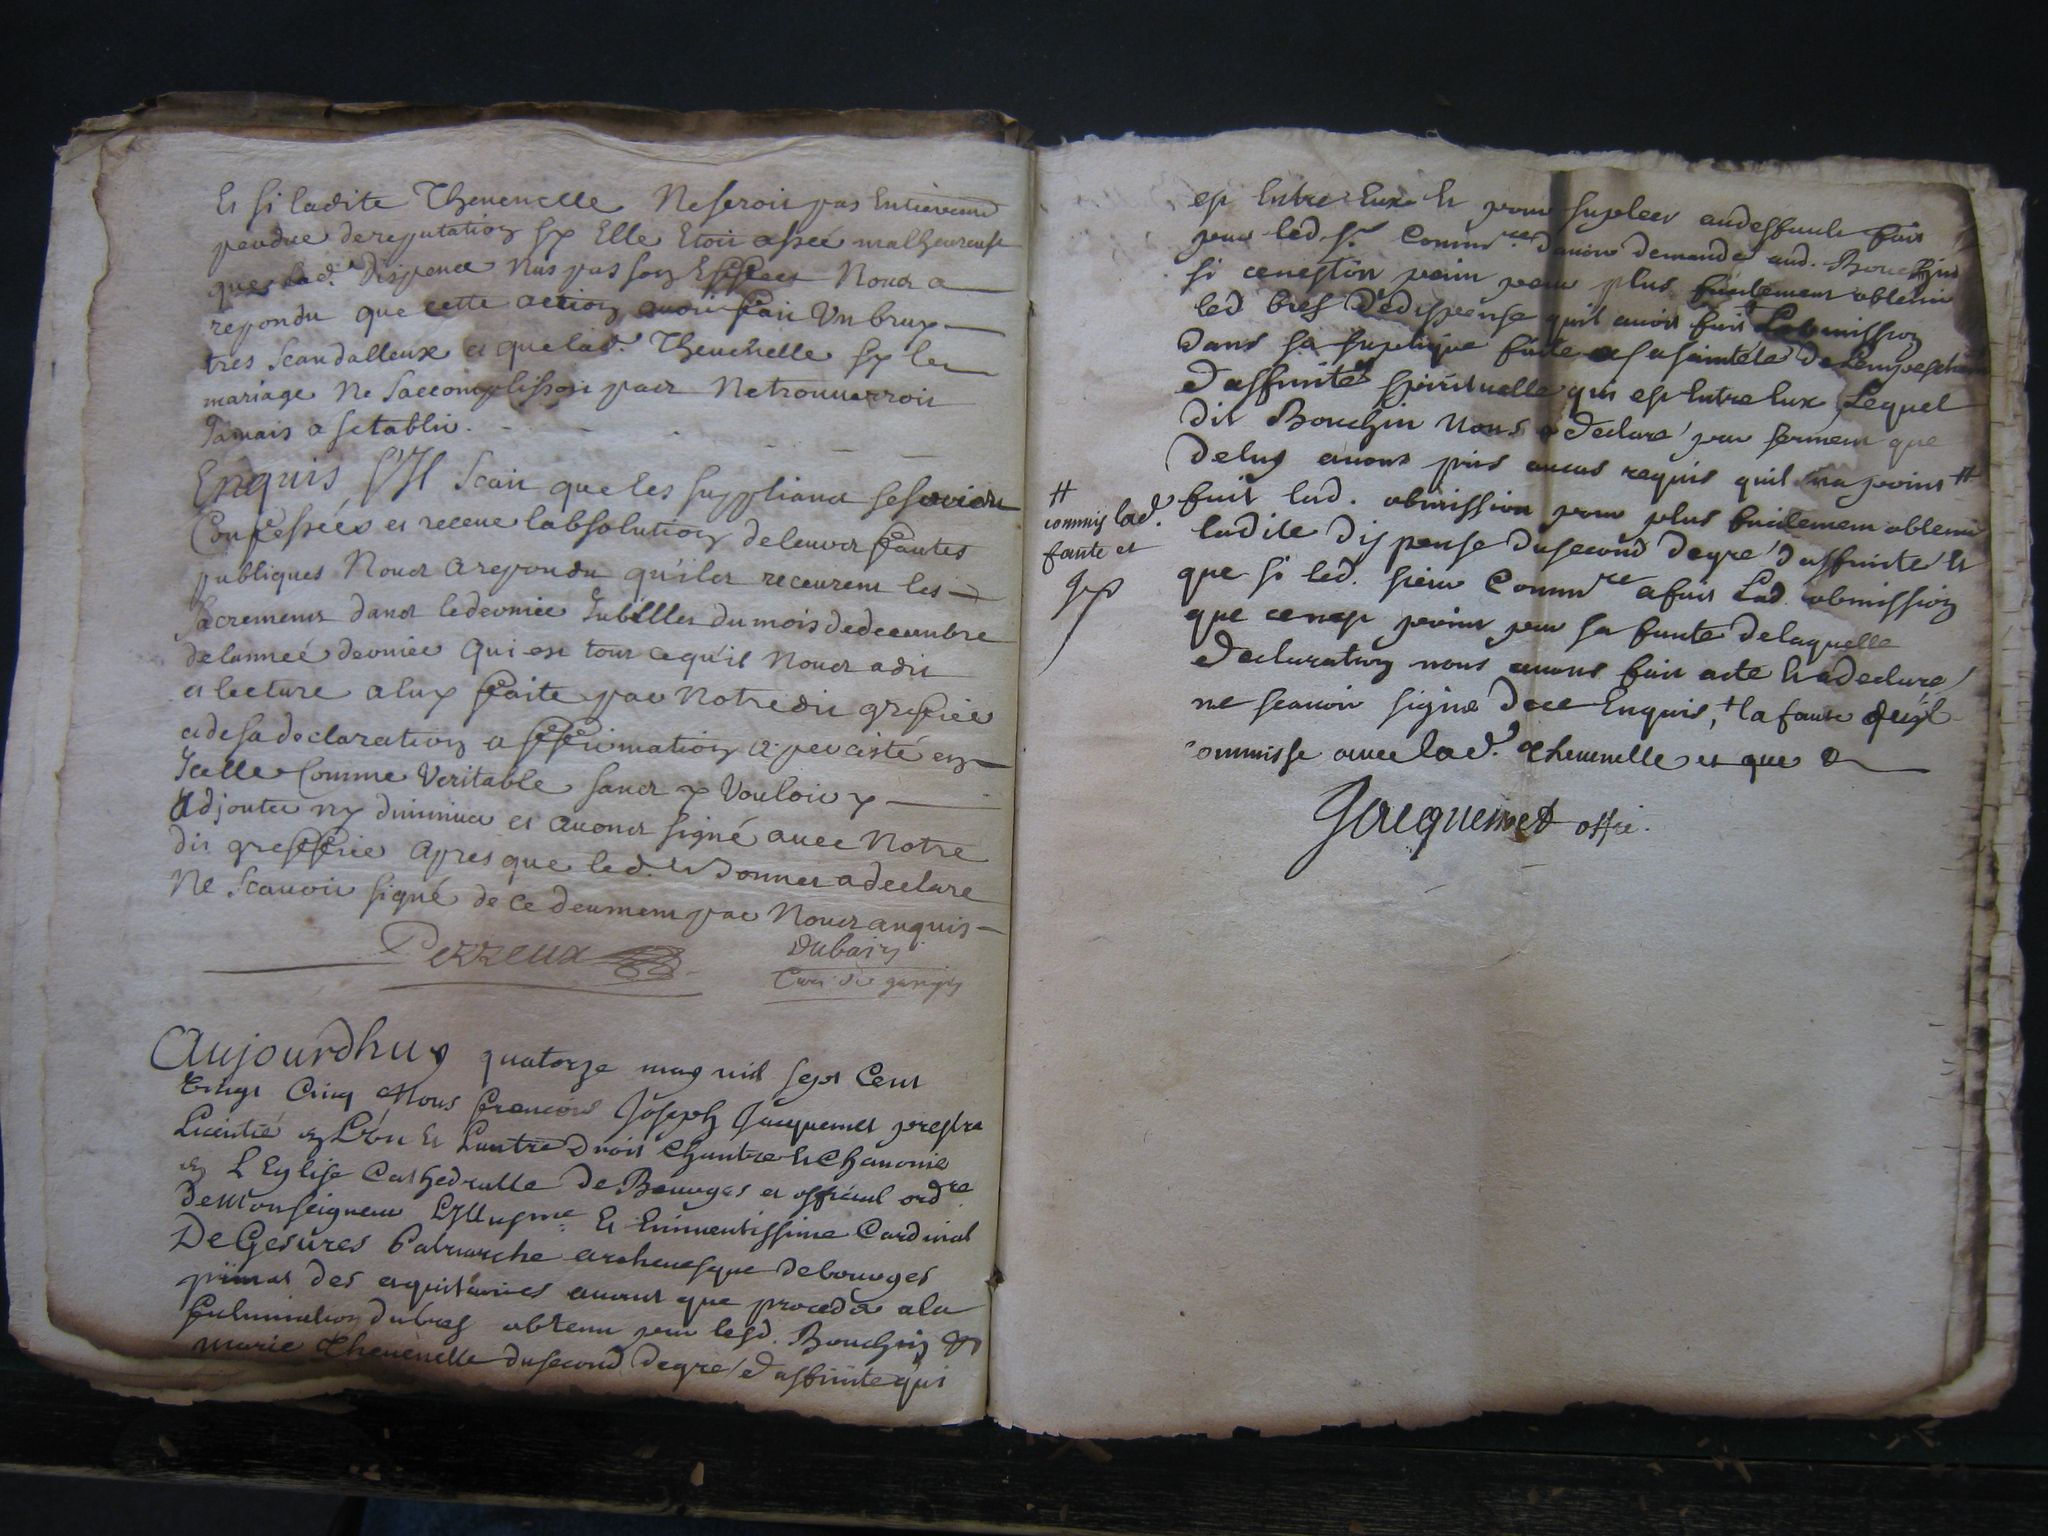 Et si ladite Thevenelle Ne seroit pas Entierem.t
perdue de reputation sy Elle Etoit assée malheureuse
que lad.e Dispence Nus pas son Effect Nous a
repondu que cette action avoit fait Un bruy
tres Scandalleux et que lad.e Thevenelle sy le
mariage Ne Saccomplissoit pas Ne trouverroit
Jamais a Setablir.
Enquis S'Il Scait que les Supplians se soient
Confessées et receue labsolution de leurs fautes
publiques Nous a repondu qu'ils receurent les
Sacremens dans le dernier Jubillez du mois de decembre
de lanneé derniee Qui est tout ce qu'il Nous a dit
et lecture a luy faite par Notre dit greffiee
et de sa declaration et affirmation a percisté en
Icelle Comme Veritable sans y Vouloir
Adjouter ny diminuer et avons signé avec Notre
dit greffier apres que led. a declare
Ne Scauoir signé de ce deument par Nous anquis
Perreux Dubain
Curé de
Aujourdhuy quatorze may mil sept Cent
vingt Cinq Nous françois Joseph Jacquemet prestre
Licentié en L'un et Lautre Droit Chantre et Chanonie
en L'Eglise Cathedralle de Bourges et official ord.re
de Monseigneur L'Illus.me Et Eminentissime Cardinal
De Gesvres Patriarche archevesque de bourges
primat des aquitaines avant que proceder a la
fulmination du bref obtenu par lesd. Bouchin et
marie thevenelle du second degré d'affinité qui
est Entre Eux Et pour supleer au deffault fait
par led. S.r Comm.re davoir demandé aud. Bouchin
si ce nestoit point pour plus facilement obtenir
led bref de dispense quil avoit fait Lobmission
dans sa suplique faite a sa sainteté de Lempeschem.t
d'affinité spirituelle qui est Entre Eux Lequel
dit Bouchin Nous a declaré par serment que
de luy avons pris aucas requis quil na point #
fait lad. obmission pour plus facilement obtenir
# commis lad.e
faute et
ladite dispense du second degré d'affinité et
que si led. sieur Comm.re a fait Lad. obmission
que ce nest point par sa faute de laquelle
declaration nous avons fait acte et a declaré
ne scavoir signé de ce Enquis, + la faute quil
commisse avec lad.e thevenelle et que
Jacquemet offi.